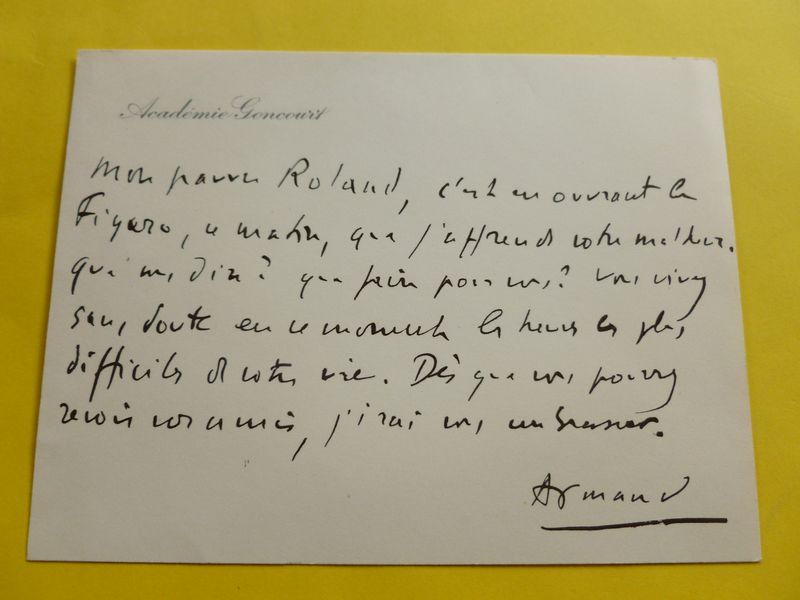 Académie Goncourt
Mon pauvre Roland, c'est en ouvrant le
Figaro, ce matin, que j'apprends votre malheur.
Que vous dire ? que faire pour vous ? Vous vivez
sans doute en ce moment les heures les plus
difficiles de votre vie. Dès que vous pourrez
revoir vos amis, j'irai vous embrasser.
Armand